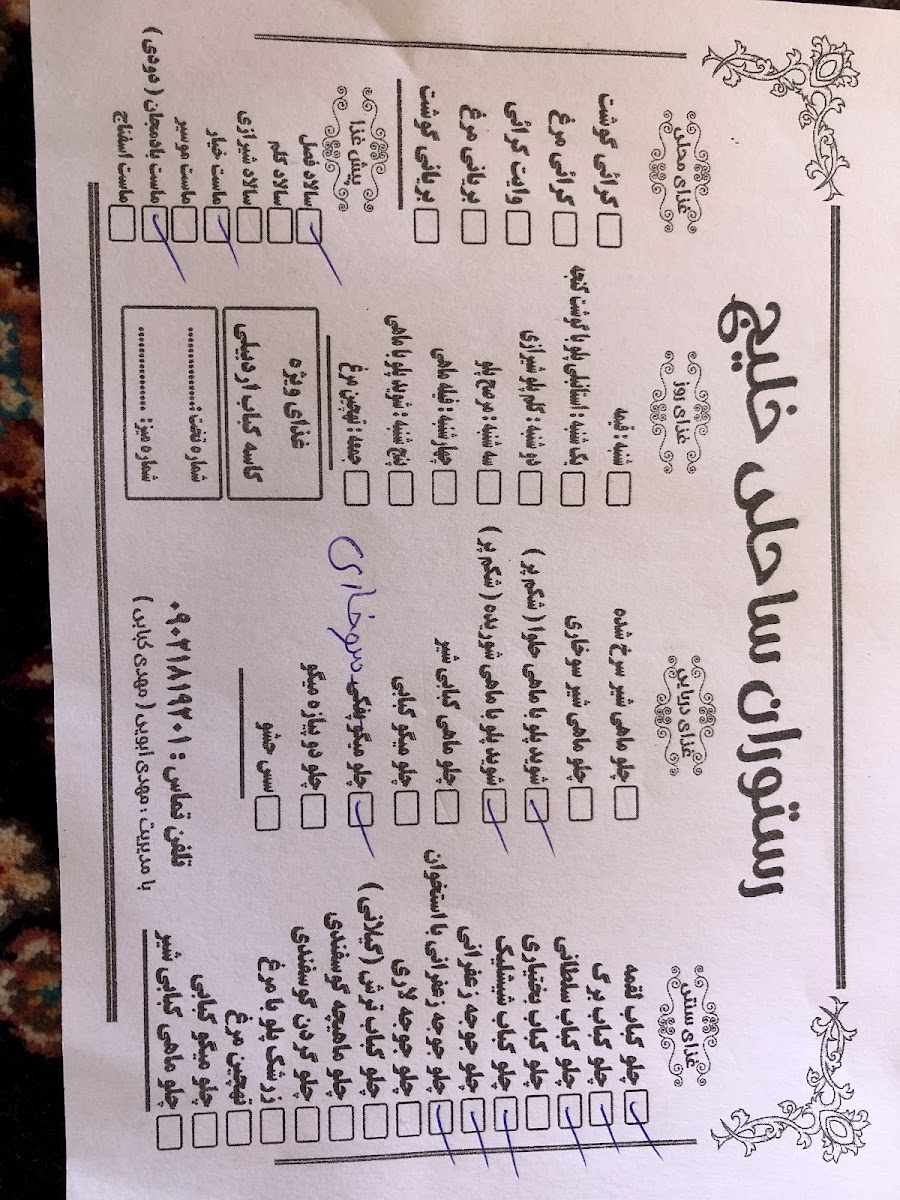 رستوران ساحلی خلیج
غذای سنتی
چلو کباب لقمه
چلو کباب برگ
چلو کباب سلطانی
چلو کباب بختیاری
چلو کباب شیشلیک
چلو جوجه زعفرانی
چلو جوجه زعفرانی با استخوان
چلو جوجه لاری
چلو کباب ترش (گیلانی)
چلو ماهیچه گوسفندی
چلو گردن گوسفندی
زرشک پلو با مرغ
ته‌چین مرغ
چلو میگو کبابی
چلو ماهی کبابی شیر
غذای دریایی
چلو ماهی شیر سرخ شده
چلو ماهی شیر سوخاری
شوید پلو با ماهی حلوا (شکم پر)
شوید پلو با ماهی شوریده (شکم پر)
چلو ماهی کبابی شیر
چلو میگو کبابی
چلو میگو پفکی سوخاری
چلو دو پیازه میگو
سس حشو
غذای روز
شنبه : قیمه
یک شنبه : استانبلی پلو با گوشت گنجه
دو شنبه : کلم پلو شیرازی
سه شنبه : مرصع پلو
چهار شنبه : فیله ماهی
پنج شنبه : شوید پلو با ماهی
جمعه : ته‌چین مرغ
غذای محلی
کرائی گوشت
کرائی مرغ
وایت کرائی
بریانی مرغ
بریانی گوشت
پیش غذا
سالاد فصل
سالاد کلم
سالاد شیرازی
ماست خیار
ماست موسیر
ماست بادمجان (دودی)
ماست اسفناج
غذای ویژه
کاسه کباب اردبیلی
شماره تخت:.............
شماره میز: .............
تلفن تماس : ۰۹۰۲۱۸۱۹۲۰۱
با مدیریت : مهدی ابویی (مهدی کبابی)